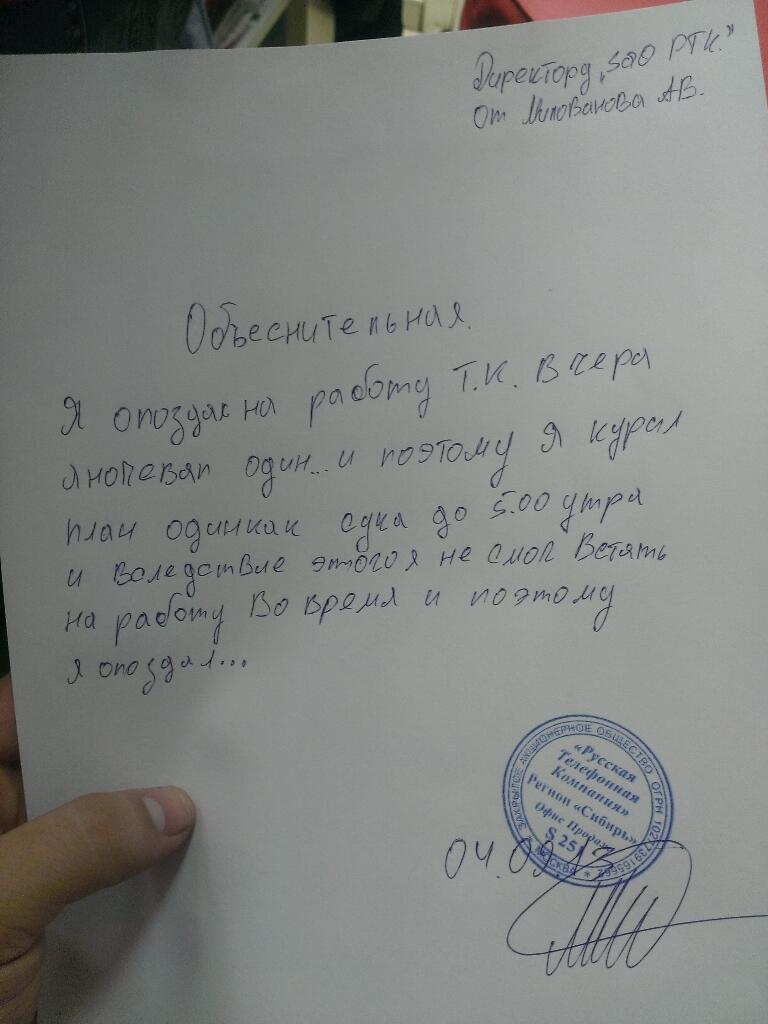 Директору „ЗАО РТК."
от Милованова АВ.
Объеснительная.
Я опоздал на работу Т.К. Вчера
я ночевал один... и поэтому я курил
план один как сука до 5.00 утра
и Вследствие этого я не смог Встять
на работу Во время и поэтому
я опоздал...
ЗАКРЫТОЕ АКЦИОНЕРНОЕ ОБЩЕСТВО ОГРН
* МОСКВА *
«Русская
Телефонная
Компания»
Регион «Сибирь»
Офис Продаж
S 251
04.09.13